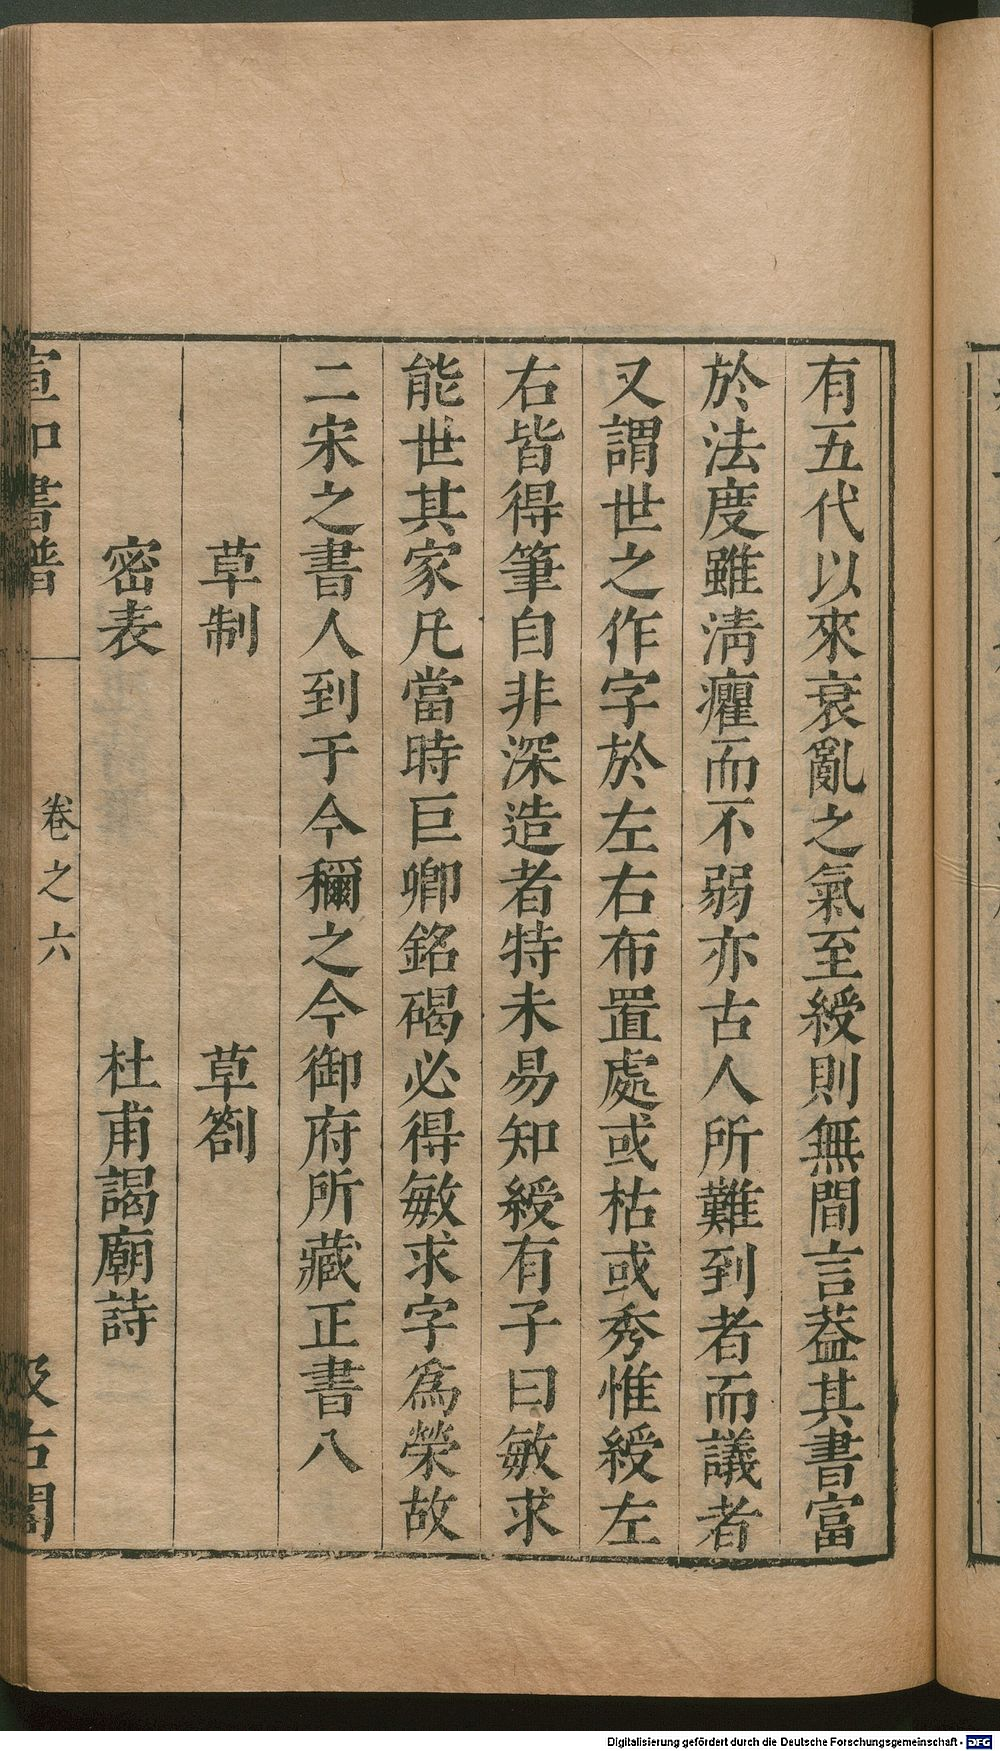 有五代以來衰亂之氣至綬則無間言葢其書富
於法度雖淸癯而不弱亦古人所難到者而議者
又謂世之作字於左右布置處或枯或秀惟綬左
右皆得筆自非深造者特未易知綬有子曰敏求
能世其家凡當時巨卿銘碣必得敏求字爲榮故
二宋之書人到于今稱之今御府所藏正書八
草制 草劄
密表 杜甫謁廟詩
宣和書譜 卷之六 汲古閣
Digitalisierung gefördert durch die Deutsche Forschungsgemeinschaft - DFG